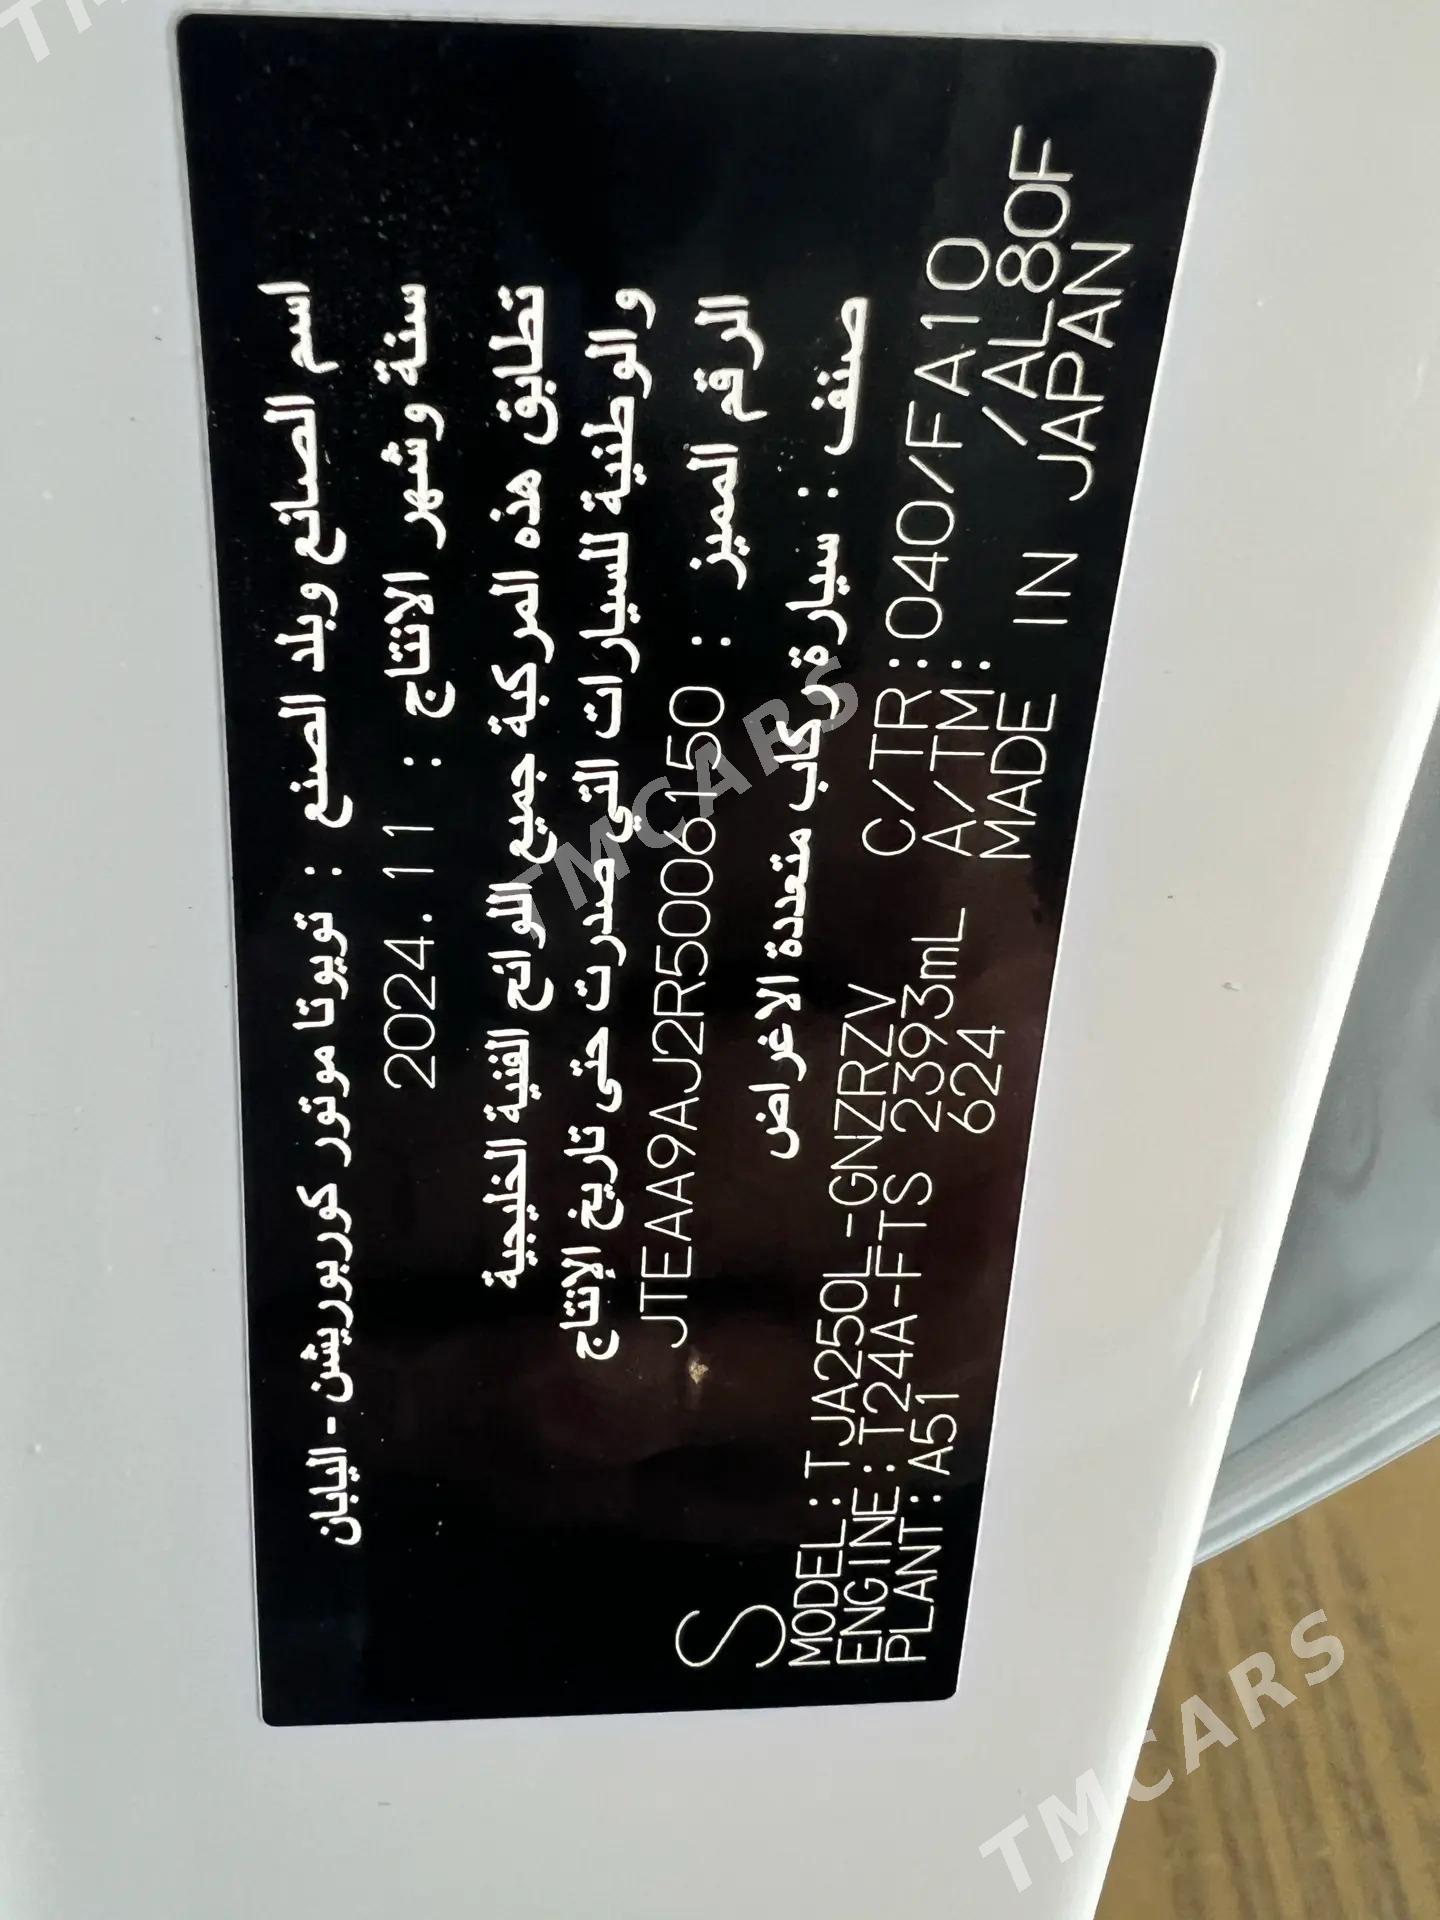 اسم الصانع وبلد الصنع : تويوتا موتور كوربوريشن - اليابان
سنة وشهر الانتاج : 2024.11
تطابق هذه المركبة جميع اللوائح الفنية الخليجية
والوطنية للسيارات التي صدرت حتى تاريخ الإنتاج
الرقم المميز : JTEAA9AJ2R5006150
صنف : سيارة ركاب متعددة الاغراض
S
MODEL:TJA250L-GNZRZV C/TR:040/FA10
ENGINE:T24A-FTS 2393mL A/TM: /AL80F
PLANT:A51 624 MADE IN JAPAN
TMCARS
TMCARS